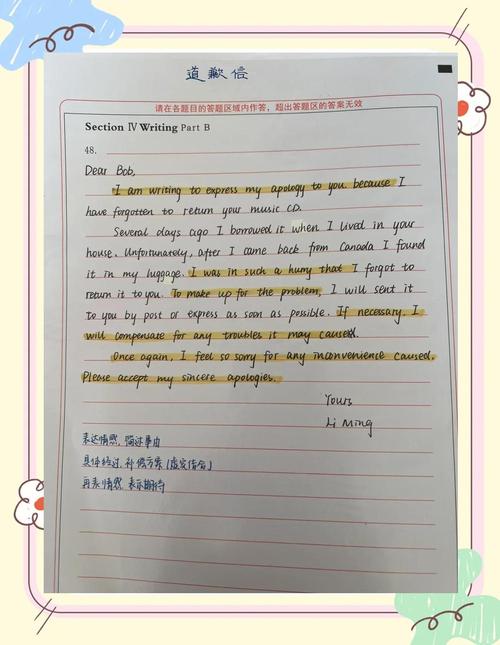 道歉信
请在各题目的答题区域内作答，超出答题区的答案无效
Section Ⅳ Writing Part B
48.
Dear Bob,
I am writing to express my apology to you because I
have forgotten to return your music CD.
Several days ago I borrowed it when I lived in your
house. Unfortunately, after I came back from Canada I found
it in my luggage. I was in such a hurry that I forgot to
return it to you. To make up for the problem, I will sent it
to you by post or express as soon as possible. If necessary, I
will compensate for any troubles it may caused.
Once again, I feel so sorry for any inconvenience caused.
Please accept my sincere apologies.
Yours
Li Ming
表达情感，简述事由
具体经过，补偿方案（虚实结合）
再表情感，表示期待